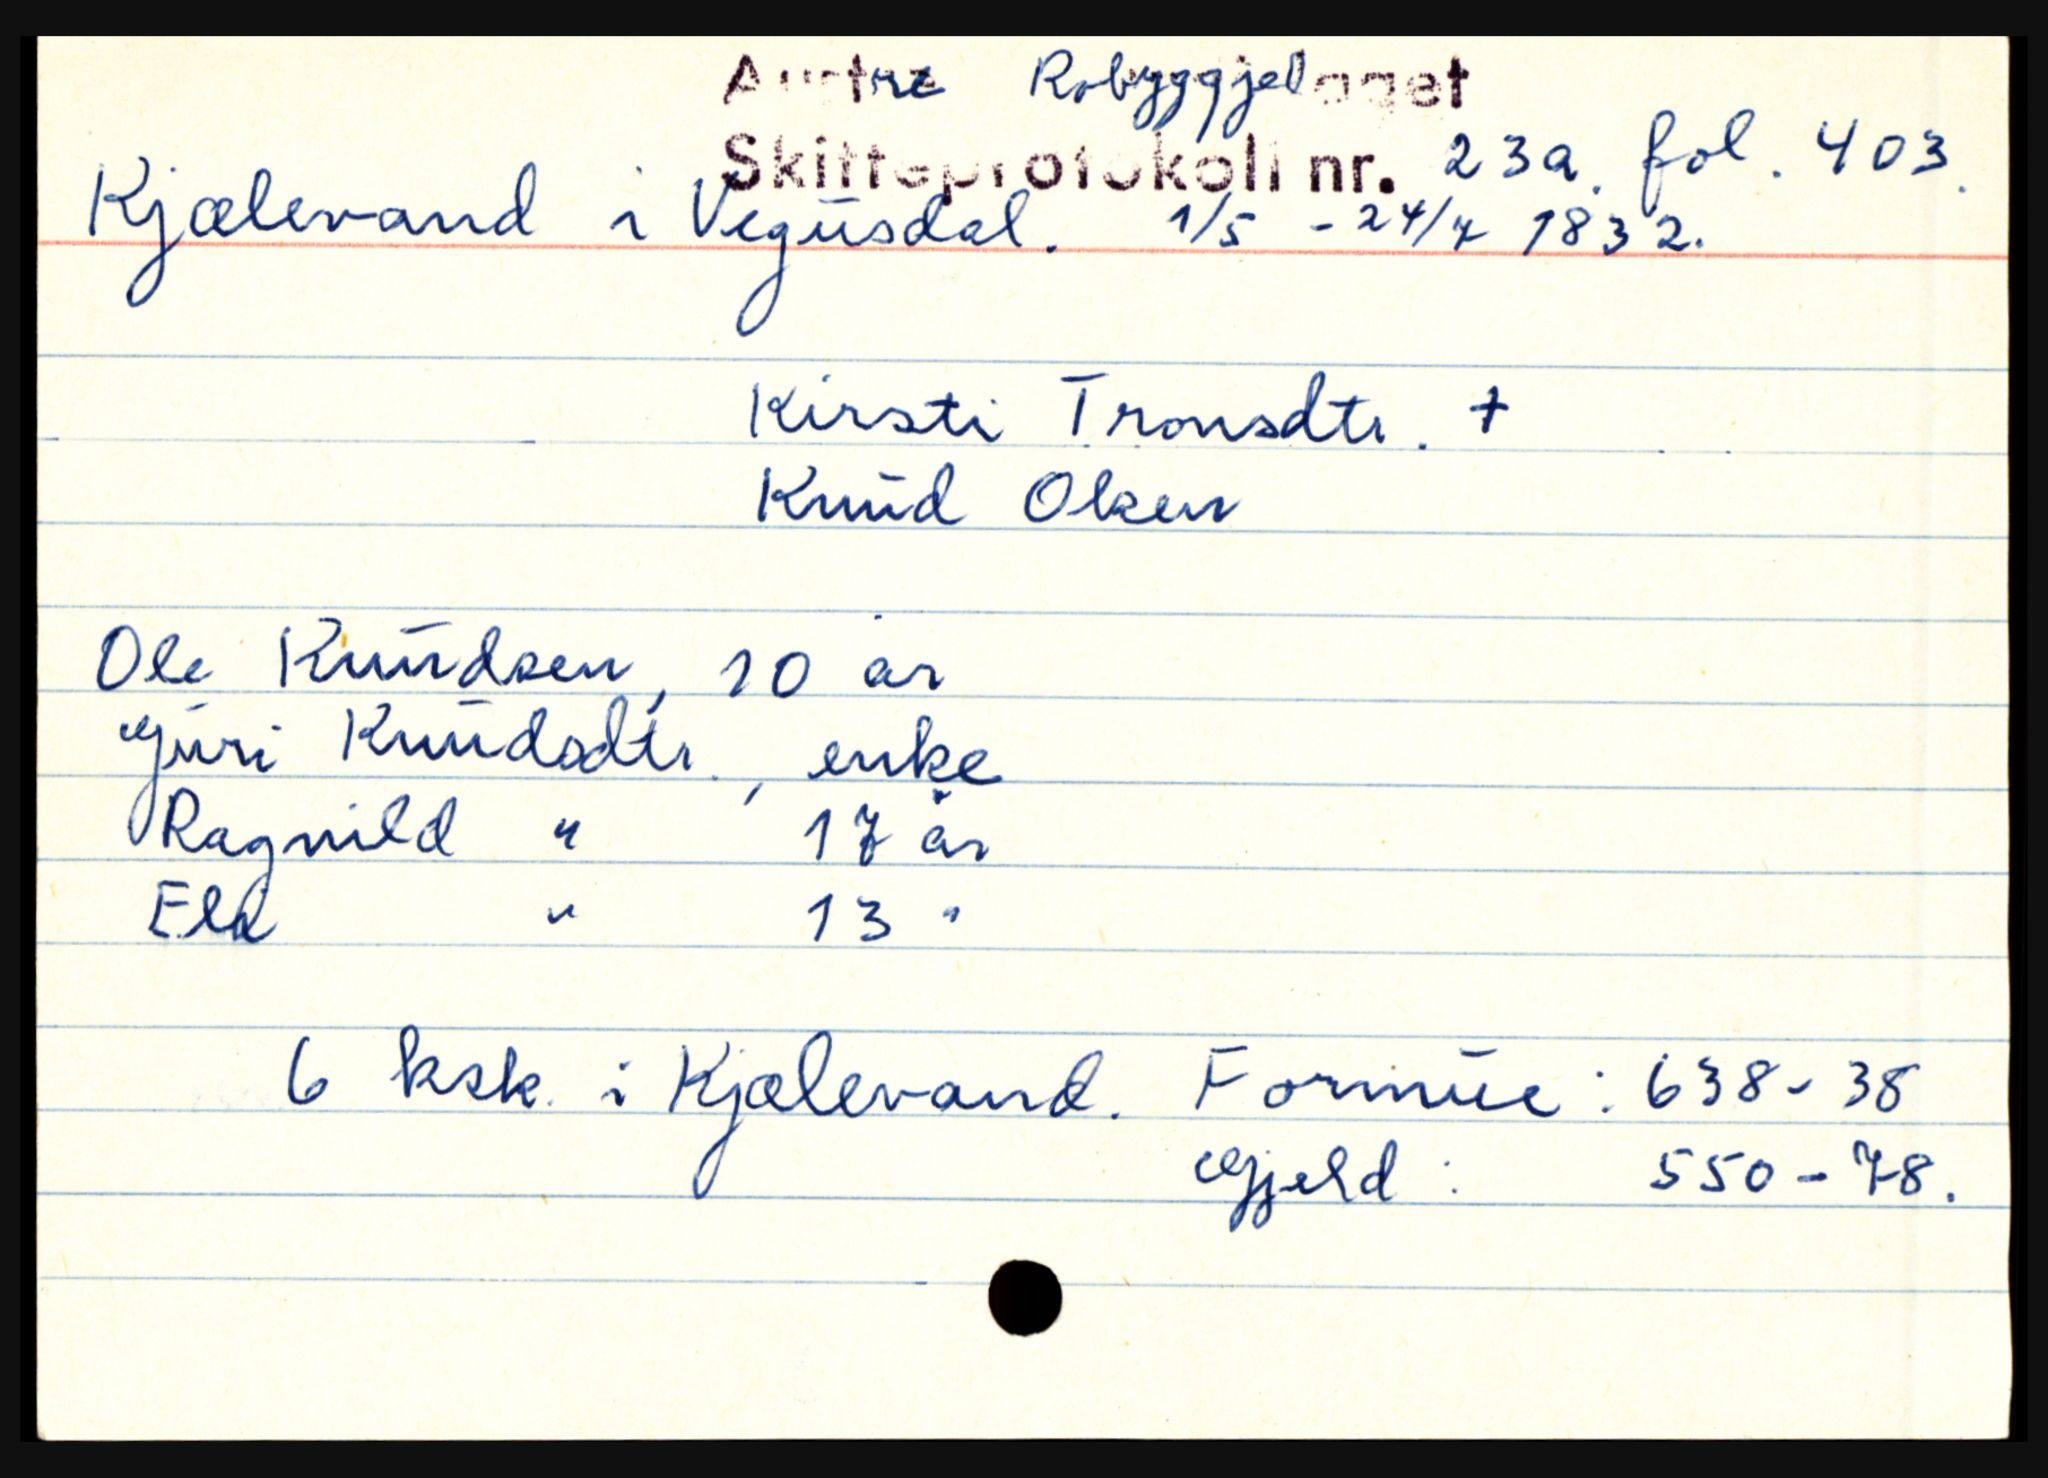 Austre Robyggjelaget
Skifteprotokoll nr. 23a. fol. 403.
Kjælevand i Vegusdal. 1/5 - 24/4 1832.
Kirsti Tronsdtr. †
Knud Olsen
Ole Knudsen, 10 år
Guri Knudsdtr., enke
Ragnild " 17 år
Eld " 13 "
6 ksk. i Kjælevand. Formue: 638-38
Gjeld: 550-78.